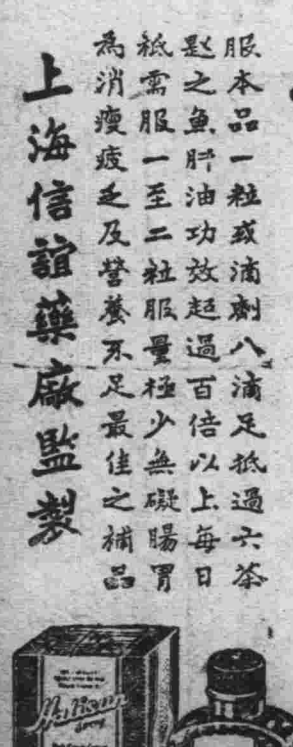 服本品一粒或滴劑八滴足抵過六茶
匙之魚肝油功效超過百倍以上每日
祇需服一至二粒服量極少無礙腸胃
為消瘦疲乏及營養不足最佳之補品
上海信誼藥廠監製